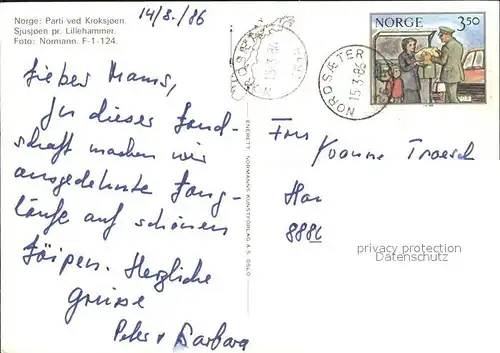 Norge: Parti ved Kroksjøen.
Sjusjøen pr. Lillehammer.
Foto: Normann. F-1-124.
14/3./86
NORGE 3,50
NORDSÆTER
15.3.86
NORDSÆTER
15.3.86
Lieber Mams,
In dieser Land-
schaft machen wir
ausgedehnte Lang-
läufe auf schönen
Loipen. Herzliche
Grüsse
Peter + Barbara
ENERETT: NORMANNS KUNSTFORLAG A.S. OSLO
Frau
Yvonne Troesch
8886
privacy protection
Datenschutz